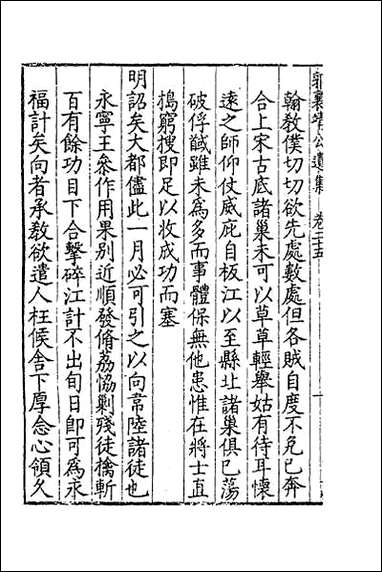 郭襄靖公遺集 卷二十五 一
翰敎僕切切欲先處數處但各賊自度不免已奔
合上宋古底諸巢未可以草草輕舉姑有待耳懷
遠之師仰仗威庇自板江以至縣北諸巢俱已蕩
破俘馘雖未爲多而事體保無他患惟在將士直
搗窮搜即足以收成功而塞
明詔矣大都儘此一月必可引之以向常陸諸徒也
永寧王叅作用果别近順發脩荔協剿殘徒擒斬
百有餘功目下合擊碎江計不出旬日即可爲永
福計矣向者承敎欲遣人枉候舍下厚念心領久